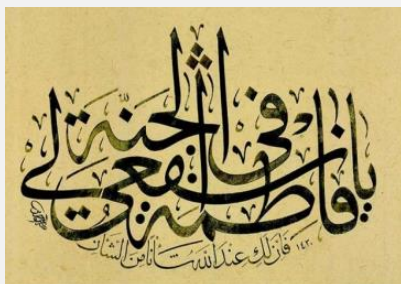 يا فاطمة اشفعي لي في الجنة
فإن لك عند الله شأنا من الشأن ١٤٢٠